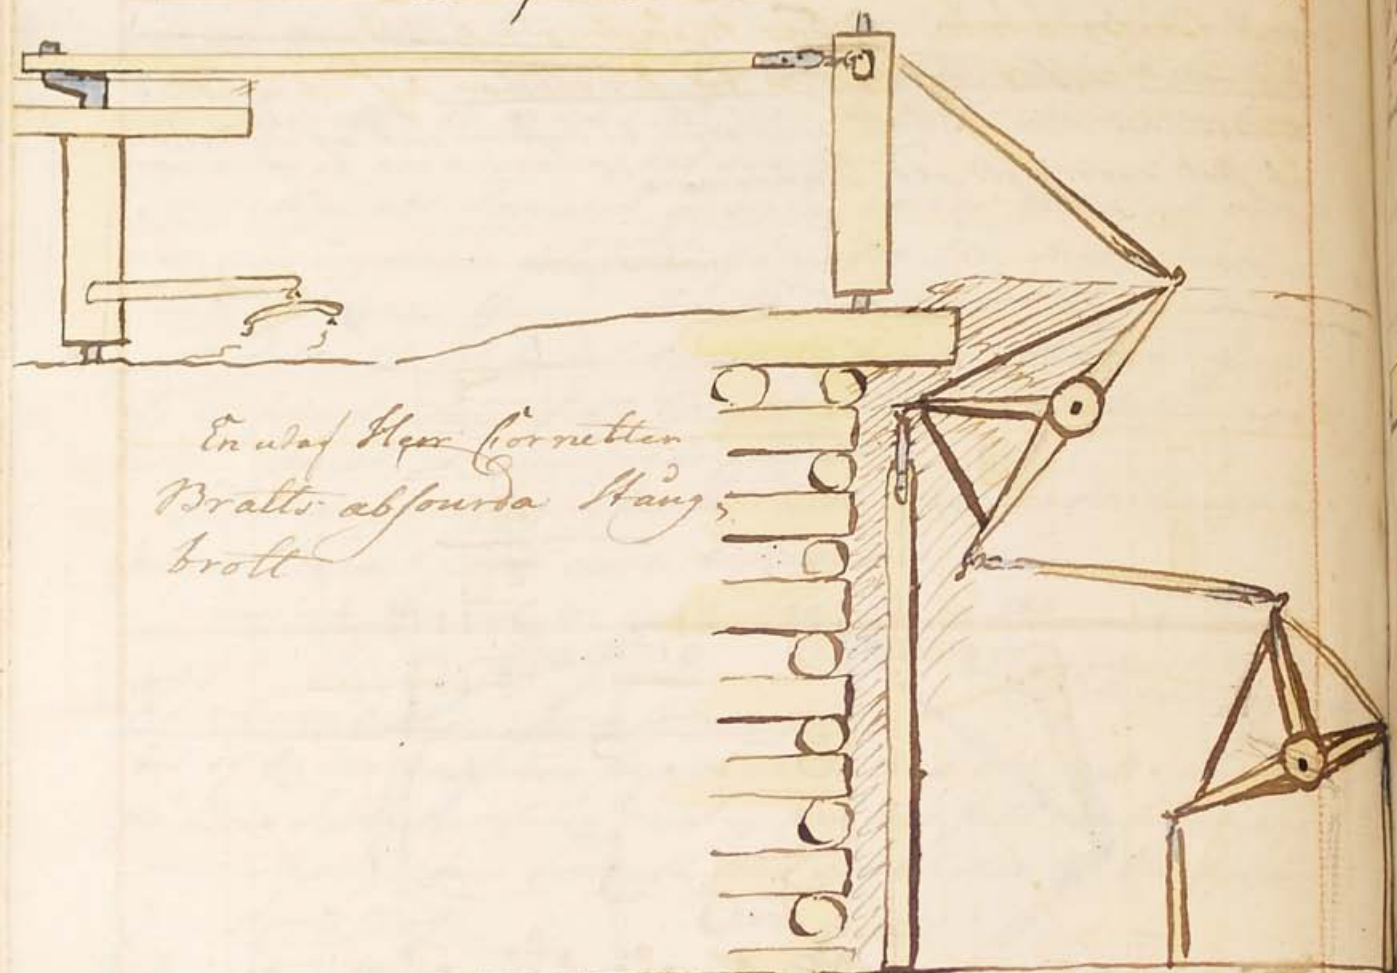 En udaf Herr Cornetten
Bralts absourda Stång-
brott